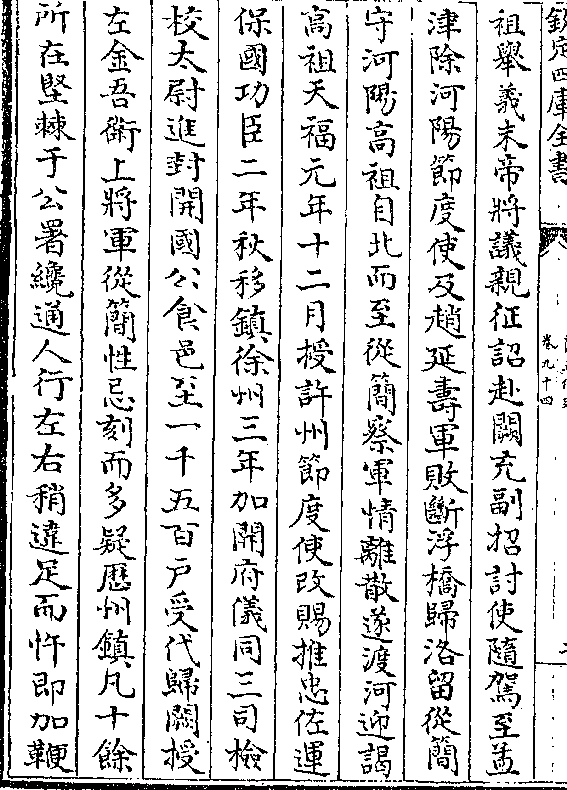 欽定四庫全書
卷九十四
祖舉義末帝將議親征詔赴闕充副招討使隨駕至孟
津除河陽節度使及趙延壽軍敗斷浮橋歸洛留從簡
守河陽高祖自北而至從簡察軍情離散遂渡河迎謁
高祖天福元年十二月授許州節度使改賜推忠佐運
保國功臣二年秋移鎮徐州三年加開府儀同三司檢
校太尉進封開國公食邑至一千五百戶受代歸闕授
左金吾衛上將軍從簡性忌刻而多疑歷州鎮凡十餘
所在堅棘于公署纔通人行左右稍違足而忤即加鞭